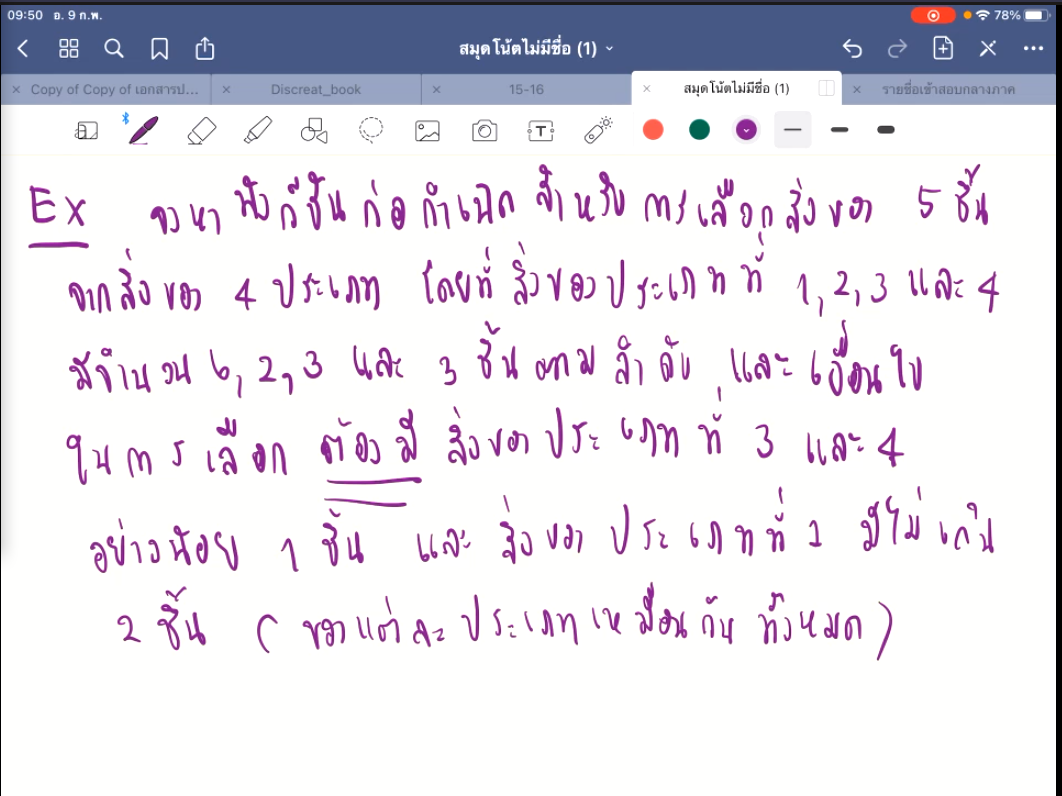 09:50 อ. 9 ก.พ.
78%
สมุดโน้ตไม่มีชื่อ (1)
Copy of Copy of เอกสารป... Discreat_book 15-16 สมุดโน้ตไม่มีชื่อ (1) รายชื่อเข้าสอบกลางภาค
Ex จงหา ฟังก์ชันก่อกำเนิด สำหรับ การเลือกสิ่งของ 5 ชิ้น
จากสิ่งของ 4 ประเภท โดยที่ สิ่งของประเภทที่ 1, 2, 3 และ 4
มีจำนวน 6, 2, 3 และ 3 ชิ้นตามลำดับ และเงื่อนไข
ในการเลือก ต้องมี สิ่งของประเภทที่ 3 และ 4
อย่างน้อย 1 ชิ้น และ สิ่งของ ประเภทที่ 1 มีไม่เกิน
2 ชิ้น ( ของแต่ละประเภทเหมือนกัน ทั้งหมด )